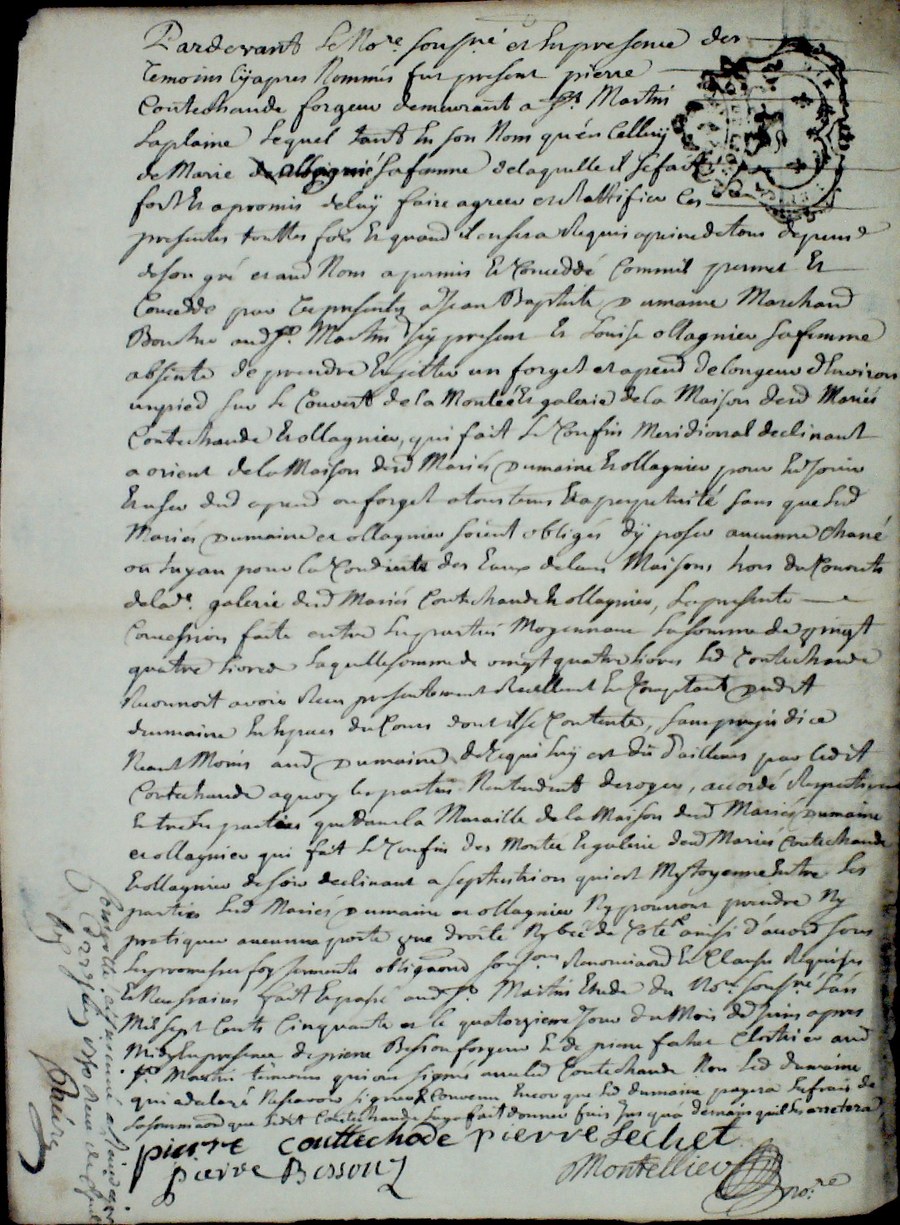 Pardevant le No.re sousné et en presence des
temoins cy apres nommés fut present pierre
Contechaude forgeur demeurant a St. Martin
Laplaine lequel tant en son nom qu'en celluy
de Marie ollagnié sa femme de laquelle il se fait
fort et a promis de luy faire agreer et rattifier ces
presentes touttes fois et quand il en sera requis a peine de tous depens
de son gré et aud nom a permis et conceddé comme il permet et
concedde par ces presentes a Jean Baptiste Dumaine Marchand
Boucher aud St. Martin icy present et Louise ollagnier sa femme
absente de prendre et jetter un forget et apend de longeur d'Environ
un pied sur le couvert de la Montée et galerie de la Maison desd Mariés
Contechaude et ollagnier, qui fait le confin meridional declinant
a orient de la Maison desd Mariés Dumaine et ollagnier pour en jouir
et user dud apend ou forget a tous tems et a perpetuité sans que lesd
Mariés Dumaine et ollagnier soient obligés d'y poser aucunne chané
ou tuyau pour la conduite des Eaux de leur Maison hors du couvert
de lad.e galerie desd Mariés Contechaude et ollagnier, la presente
concession faite entre les parties moyennant la somme de vingt
quatre livres laquelle somme de vingt quatre livres led Contechaude
reconnoit avoir recu presentement reellement et comptant dudit
Dumaine en Especes du cours dont il se contente, sans prejudice
neant moins aud Dumaine de ce qui luy est dû d'ailleurs par ledit
Contechaude a quoy les parties n'entendent deroger, accordé
entre les parties que dans la Muraille de la Maison desd Mariés Dumaine
et ollagnier qui fait le confin des Montée et galerie desd Mariés Contechaude
et ollagnier de soir declinant a septentrion qui est mytoyenne entre les
parties lesd Mariés Dumaine et ollagnier ny pourront prendre ny
pratiquer aucunne porte vue droite ny de coté ainsi d'accord sous
les promesses foy serments obligaons renonciaons et clauses requises
et necessaires fait et passé aud St Martin Etude du No.re sousné l'an
Mil sept cents cinquante et le quatorzieme jour du Mois de Juin apres
Midy en presence de pierre Besson forgeur et de pierre aud
St. Martin temoins qui ont signés avec led Contechaude non led Dumaine
qui a declaré ne scavoir signer convenu encor que led Dumaine payera les frais de
pierre couttechode pierre Lechet
pierre Besson
Montellier no.re
Controllé